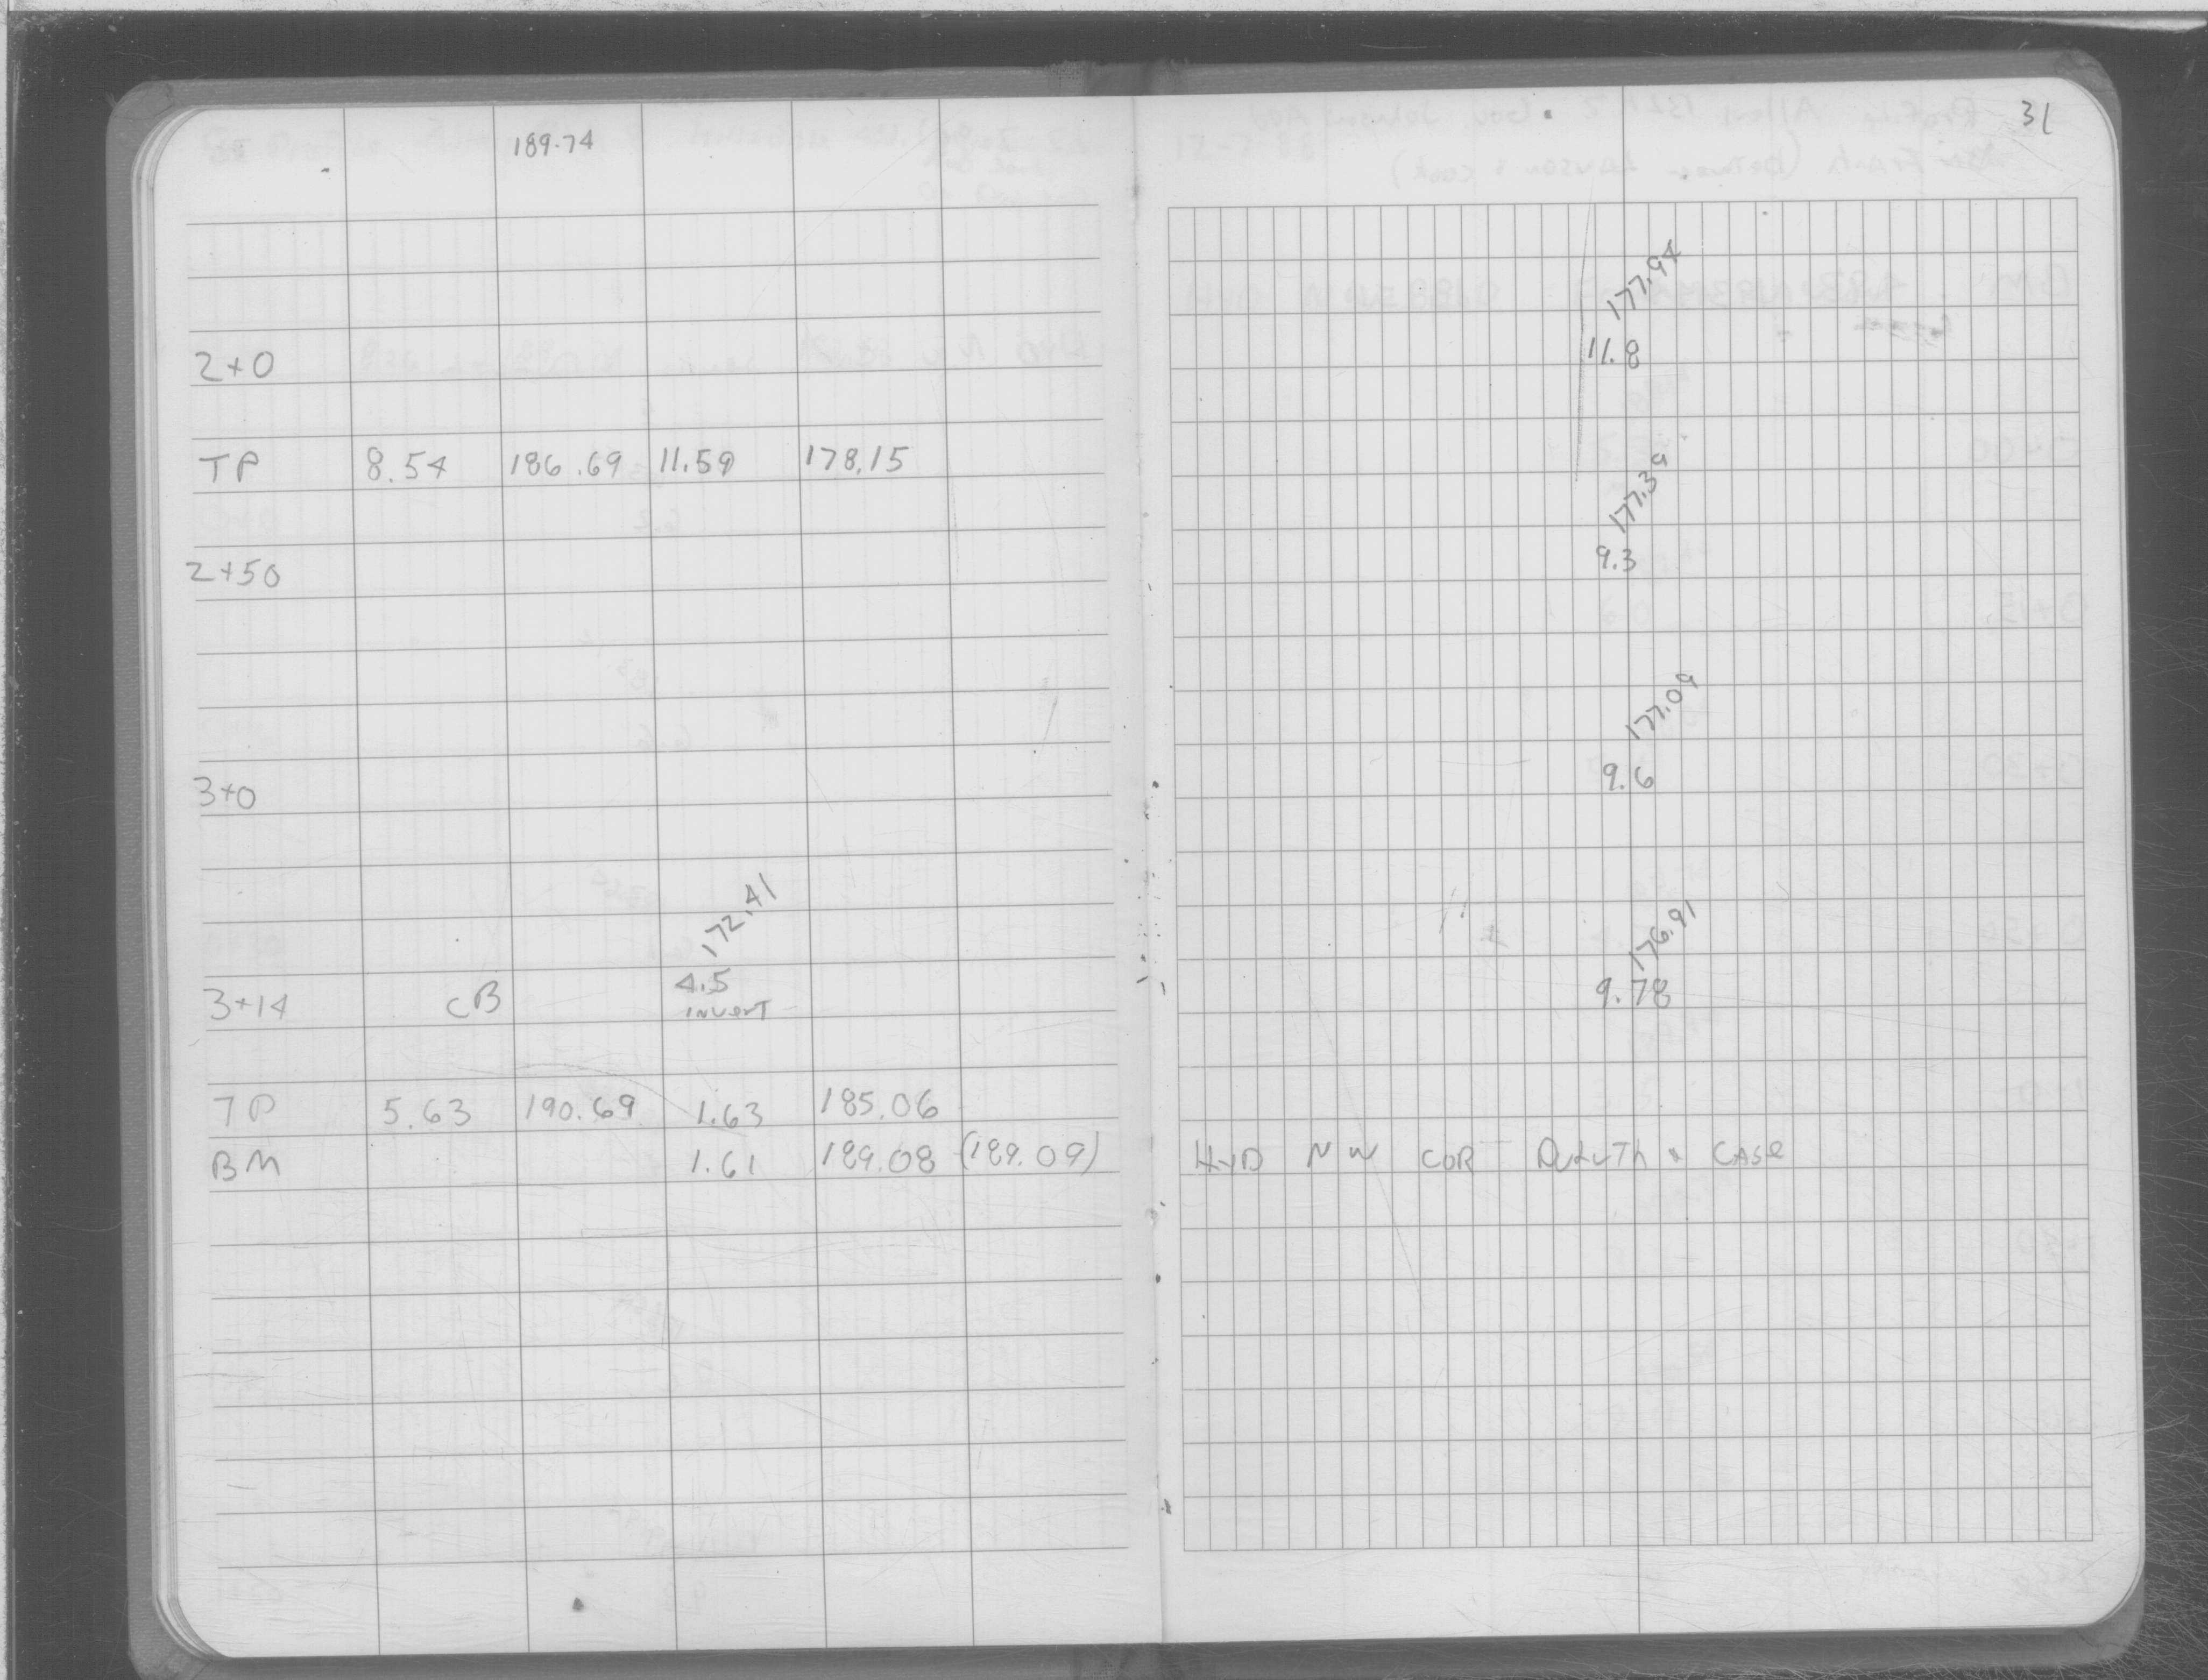 31
189.74
177.94
2+0 11.8
TP 8.54 186.69 11.59 178.15
177.39
2+50 9.3
177.09
3+0 9.6
172.41 176.91
3+14 CB 4.5 9.78
INVERT
TP 5.63 190.69 1.63 185.06
BM 1.61 189.08 (189.09) HYD NW COR DULUTH & CASE